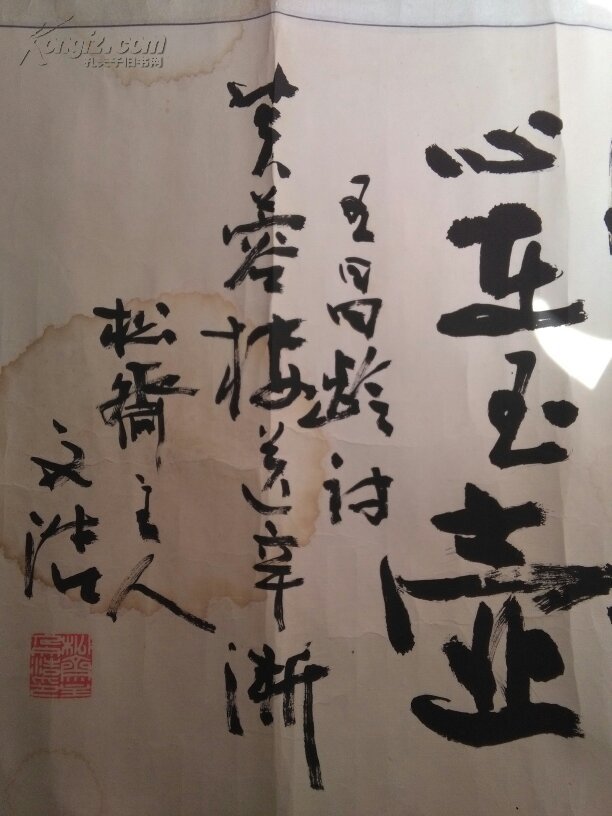 心在玉壶
王昌龄诗
芙蓉楼送辛渐
松斋主人
文浩
Kongfz.com
孔夫子旧书网